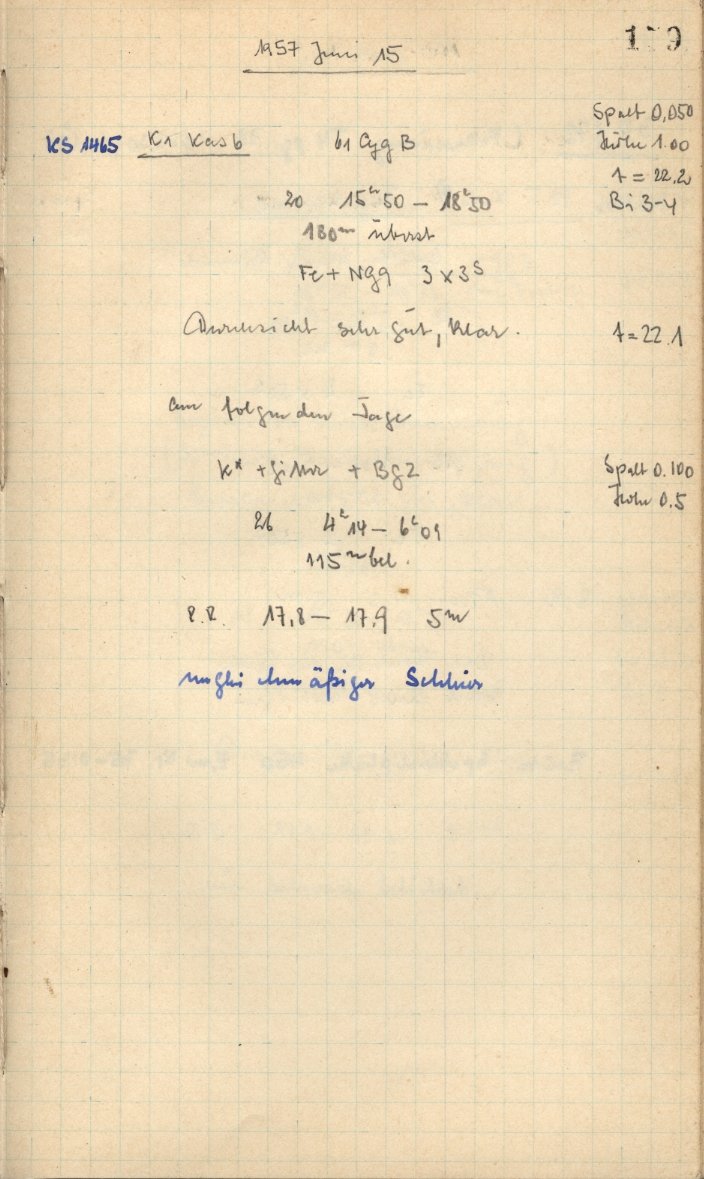 1957 Juni 15
Spalt 0,050
KS 1465 K1 Kas b 61 Cyg B Höhe 1.00
t = 22.2
20 15h50 – 18h50 Bi 3-4
180m überst
Fe + NGg 3x3s
Durchsicht sehr gut, klar. t = 22.1
am folgenden Tage
K* + Gitter + BG2 Spalt 0.100
Höhe 0.5
26 4h14 – 6h09
115m bel.
P.R. 17,8 – 17,9 5m
ungleichmäßiger Schleier